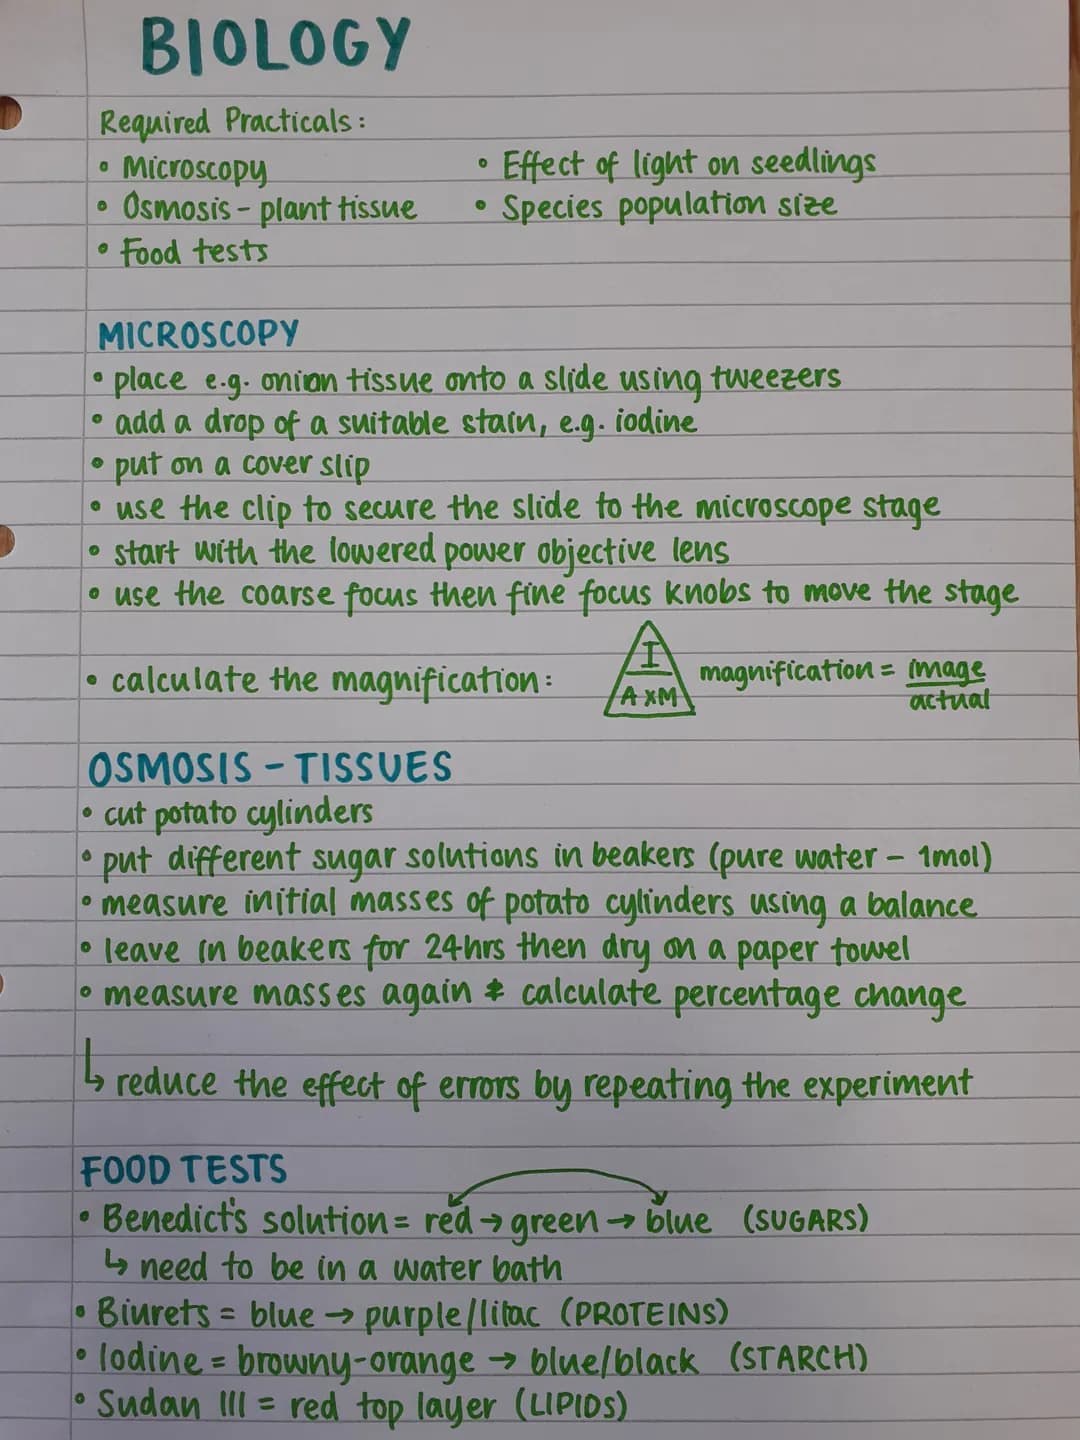 BIOLOGY
Required Practicals:
• Microscopy
• Osmosis - plant tissue
• Food tests
• Effect of light on seedlings
• Species population size
MICROSCOPY
• place e.g. onion tissue onto a slide using tweezers
• add a drop of a suitable stain, e.g. iodine
• put on a cover slip
• use the clip to secure the slide to the microscope stage
• start with the lowered power objective lens
• use the coarse focus then fine focus knobs to move the stage
• calculate the magnification:
I
A x M
magnification = image
actual
OSMOSIS - TISSUES
• cut potato cylinders
• put different sugar solutions in beakers (pure water - 1mol)
• measure initial masses of potato cylinders using a balance
• leave in beakers for 24hrs then dry on a paper towel
• measure masses again & calculate percentage change
↳ reduce the effect of errors by repeating the experiment
FOOD TESTS
• Benedict's solution = red → green → blue (SUGARS)
↳ need to be in a water bath
• Biurets = blue → purple/lilac (PROTEINS)
• Iodine = browny-orange → blue/black (STARCH)
• Sudan III = red top layer (LIPIDS)